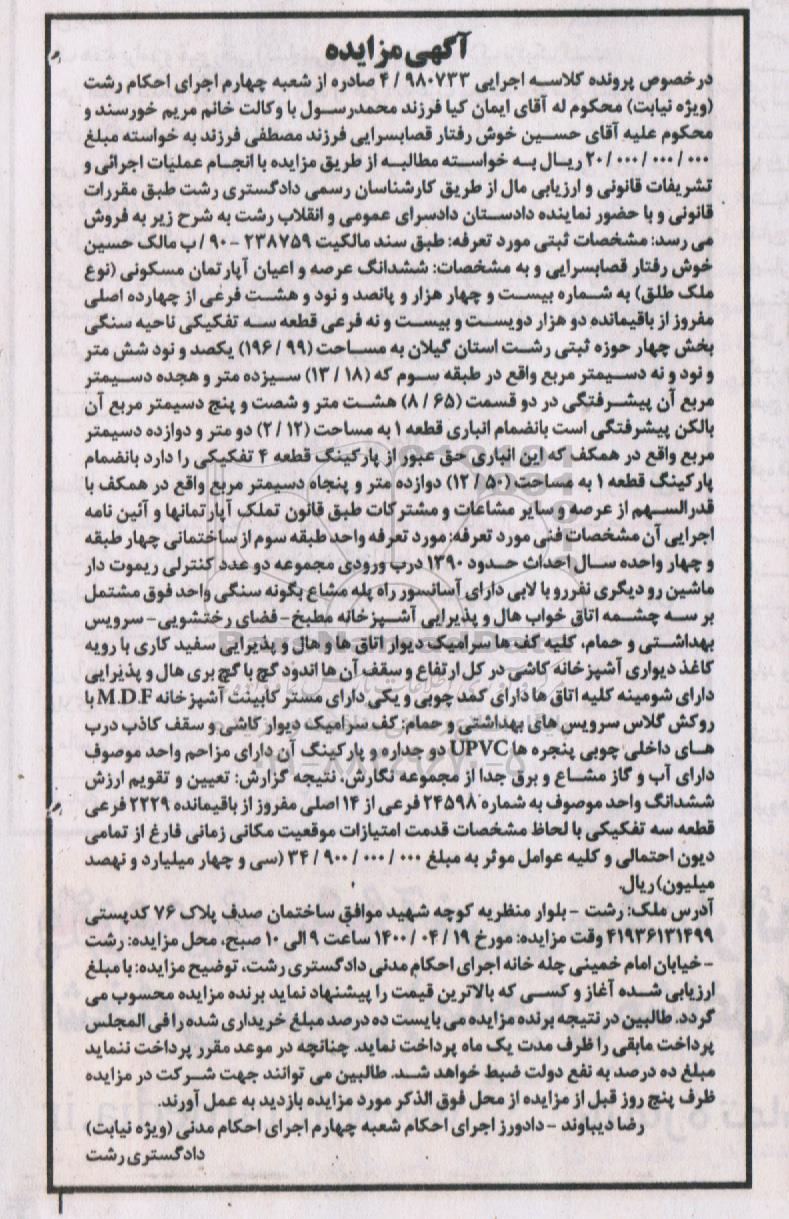 آگهی مزایده
در خصوص پرونده کلاسه اجرایی ۹۸۰۷۳۳ / ۴ صادره از شعبه چهارم اجرای احکام رشت
(ویژه نیابت) محکوم له آقای ایمان کیا فرزند محمدرسول با وکالت خانم مریم خورسند و
محکوم علیه آقای حسین خوش رفتار قصابسرایی فرزند مصطفی فرزند به خواسته مبلغ
۲۰/۰۰۰/۰۰۰/۰۰۰ ریال به خواسته مطالبه از طریق مزایده با انجام عملیات اجرائی و
تشریفات قانونی و ارزیابی مال از طریق کارشناسان رسمی دادگستری رشت طبق مقررات
قانونی و با حضور نماینده دادستان دادسرای عمومی و انقلاب رشت به شرح زیر به فروش
می رسد: مشخصات ثبتی مورد تعرفه: طبق سند مالکیت ۲۳۸۷۵۹ – ۹۰ / ب مالک حسین
خوش رفتار قصابسرایی و به مشخصات: ششدانگ عرصه و اعیان آپارتمان مسکونی (نوع
ملک طلق) به شماره بیست و چهار هزار و پانصد و نود و هشت فرعی از چهارده اصلی
مفروز از باقیمانده دو هزار دویست و بیست و نه فرعی قطعه سه تفکیکی ناحیه سنگی
بخش چهار حوزه ثبتی رشت استان گیلان به مساحت (۹۹ / ۱۹۶) یکصد و نود شش متر
و نود و نه دسیمتر مربع واقع در طبقه سوم که (۱۸ / ۱۳) سیزده متر و هجده دسیمتر
مربع آن پیشرفتگی در دو قسمت (۶۵ / ۸) هشت متر و شصت و پنج دسیمتر مربع آن
بالکن پیشرفتگی است بانضمام انباری قطعه ۱ به مساحت (۱۲ / ۲) دو متر و دوازده دسیمتر
مربع واقع در همکف که این انباری حق عبور از پارکینگ قطعه ۴ تفکیکی را دارد بانضمام
پارکینگ قطعه ۱ به مساحت (۵۰ / ۱۲) دوازده متر و پنجاه دسیمتر مربع واقع در همکف با
قدرالسهم از عرصه و سایر مشاعات و مشترکات طبق قانون تملک آپارتمانها و آئین نامه
اجرایی آن مشخصات فنی مورد تعرفه: مورد تعرفه واحد طبقه سوم از ساختمانی چهار طبقه
و چهار واحده سال احداث حدود ۱۳۹۰ درب ورودی مجموعه دو عدد کنترلی ریموت دار
ماشین رو دیگری نفررو با لابی دارای آسانسور راه پله مشاع بگونه سنگی واحد فوق مشتمل
بر سه چشمه اتاق خواب هال و پذیرایی آشپزخانه مطبخ – فضای رختشویی – سرویس
بهداشتی و حمام، کلیه کف ها سرامیک دیوار اتاق ها و هال و پذیرایی سفید کاری با رویه
کاغذ دیواری آشپزخانه کاشی در کل ارتفاع و سقف آن ها اندود گچ با گچ بری هال و پذیرایی
دارای شومینه کلیه اتاق ها دارای کمد چوبی و یکی دارای مستر کابینت آشپزخانه M.D.F با
روکش گلاس سرویس های بهداشتی و حمام: کف سرامیک دیوار کاشی و سقف کاذب درب
های داخلی چوبی پنجره ها UPVC دو جداره و پارکینگ آن دارای مزاحم واحد موصوف
دارای آب و گاز مشاع و برق جدا از مجموعه نگارش. نتیجه گزارش: تعیین و تقویم ارزش
ششدانگ واحد موصوف به شماره ۲۴۵۹۸ فرعی از ۱۴ اصلی مفروز از باقیمانده ۲۲۲۹ فرعی
قطعه سه تفکیکی با لحاظ مشخصات قدمت امتیازات موقعیت مکانی زمانی فارغ از تمامی
دیون احتمالی و کلیه عوامل موثر به مبلغ ۳۴/۹۰۰/۰۰۰/۰۰۰ (سی و چهار میلیارد و نهصد
میلیون) ریال.
آدرس ملک: رشت – بلوار منظریه کوچه شهید موافق ساختمان صدف پلاک ۷۶ کدپستی
۴۱۹۳۶۱۳۱۴۹۹ وقت مزایده: مورخ ۱۹ / ۰۴ / ۱۴۰۰ ساعت ۹ الی ۱۰ صبح، محل مزایده: رشت
– خیابان امام خمینی چله خانه اجرای احکام مدنی دادگستری رشت. توضیح مزایده: با مبلغ
ارزیابی شده آغاز و کسی که بالاترین قیمت را پیشنهاد نماید برنده مزایده محسوب می
گردد. طالبین در نتیجه برنده مزایده می بایست ده درصد مبلغ خریداری شده را فی المجلس
پرداخت مابقی را ظرف مدت یک ماه پرداخت نماید. چنانچه در موعد مقرر پرداخت ننماید
مبلغ ده درصد به نفع دولت ضبط خواهد شد. طالبین می توانند جهت شرکت در مزایده
ظرف پنج روز قبل از مزایده از محل فوق الذکر مورد مزایده بازدید به عمل آورند.
رضا دیباوند – دادورز اجرای احکام شعبه چهارم اجرای احکام مدنی (ویژه نیابت)
دادگستری رشت